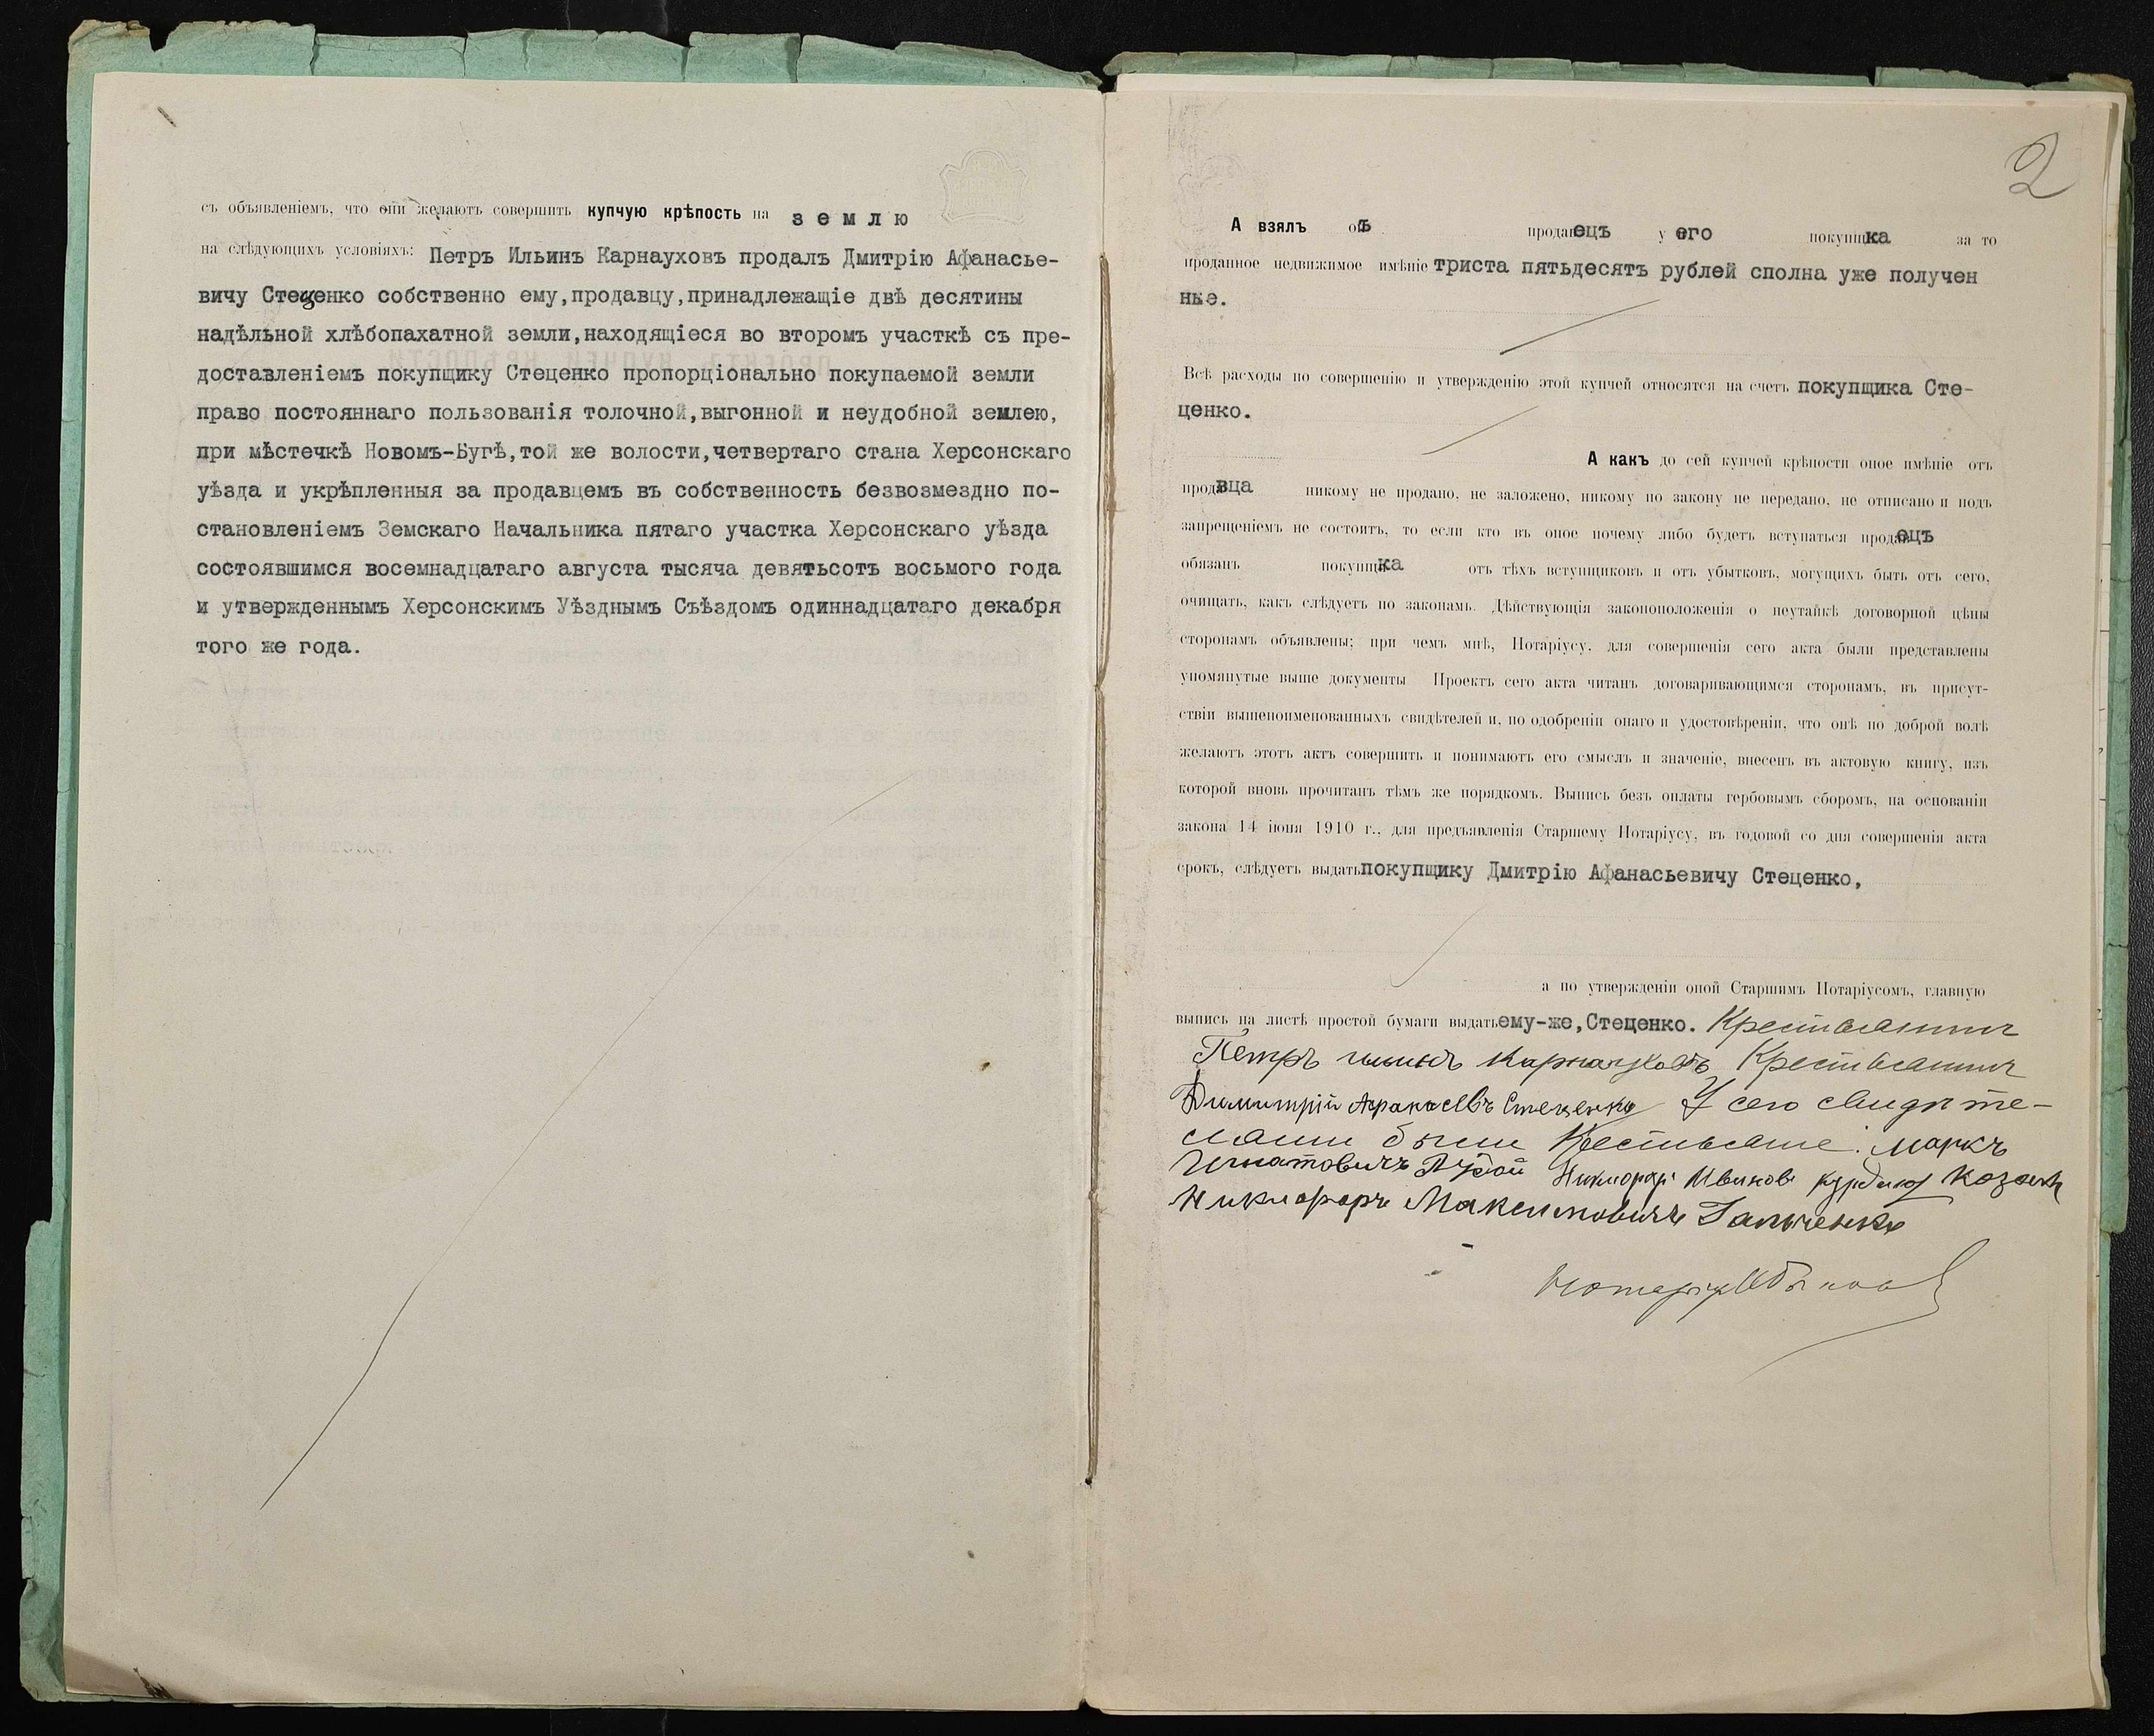 съ объявленіемъ, что они желаютъ совершить купчую крѣпость на землю
на слѣдующихъ условіяхъ: Петръ Ильинъ Карнауховъ продалъ Дмитрію Афанасье-
вичу Стеценко собственно ему,продавцу,принадлежащіе двѣ десятины
надѣльной хлѣбопахатной земли,находящіеся во второмъ участкѣ съ пре-
доставленіемъ покупщику Стеценко пропорціонально покупаемой земли
право постояннаго пользованія толочной,выгонной и неудобной землею,
при мѣстечкѣ Новомъ-Бугѣ,той же волости,четвертаго стана Херсонскаго
уѣзда и укрѣпленныя за продавцемъ въ собственность безвозмездно по-
становленіемъ Земскаго Начальника пятаго участка Херсонскаго уѣзда
состоявшимся восемнадцатаго августа тысяча девятьсотъ восьмого года
и утвержденнымъ Херсонскимъ Уѣзднымъ Съѣздомъ одиннадцатаго декабря
того же года.
2
А взялъ онъ продавецъ у него покупщика за то
проданное недвижимое имѣніе триста пятьдесятъ рублей сполна уже получен
ные.
Всѣ расходы по совершенію и утвержденію этой купчей относятся на счетъ покупщика Сте-
ценко.
А какъ до сей купчей крѣпости оное имѣніе отъ
продавца никому не продано, не заложено, никому по закону не передано, не отписано и подъ
запрещеніемъ не состоитъ, то если кто въ оное почему либо будетъ вступаться продавецъ
обязанъ покупщика отъ тѣхъ вступщиковъ и отъ убытковъ, могущихъ быть отъ сего,
очищать, какъ слѣдуетъ по законамъ. Дѣйствующія законоположенія о неутайкѣ договорной цѣны
сторонамъ объявлены; при чемъ мнѣ, Нотаріусу, для совершенія сего акта были представлены
упомянутые выше документы Проектъ сего акта читанъ договаривающимся сторонамъ, въ присут-
ствіи вышепоименованныхъ свидѣтелей и, по одобреніи онаго и удостовѣреніи, что онѣ по доброй волѣ
желаютъ этотъ актъ совершить и понимаютъ его смыслъ и значеніе, внесенъ въ актовую книгу, изъ
которой вновь прочитанъ тѣмъ же порядкомъ. Выпись безъ оплаты гербовымъ сборомъ, на основаніи
закона 14 іюня 1910 г., для предъявленія Старшему Нотаріусу, въ годовой со дня совершенія акта
срокъ, слѣдуетъ выдать покупщику Дмитрію Афанасьевичу Стеценко,
а по утвержденіи оной Старшимъ Нотаріусомъ, главную
выпись на листѣ простой бумаги выдать ему-же,Стеценко. Крестьянинъ
Петръ ильинъ Карнауховъ Крестьянинъ
Димитрій Афанасіевъ Стеценко У сего свидѣте-
лями были Крестьяне: Маркъ
Игнатовичъ Никифоръ Ивановъ Козакъ
Никифоръ Максимовичъ Гальченко
Нотаріусъ